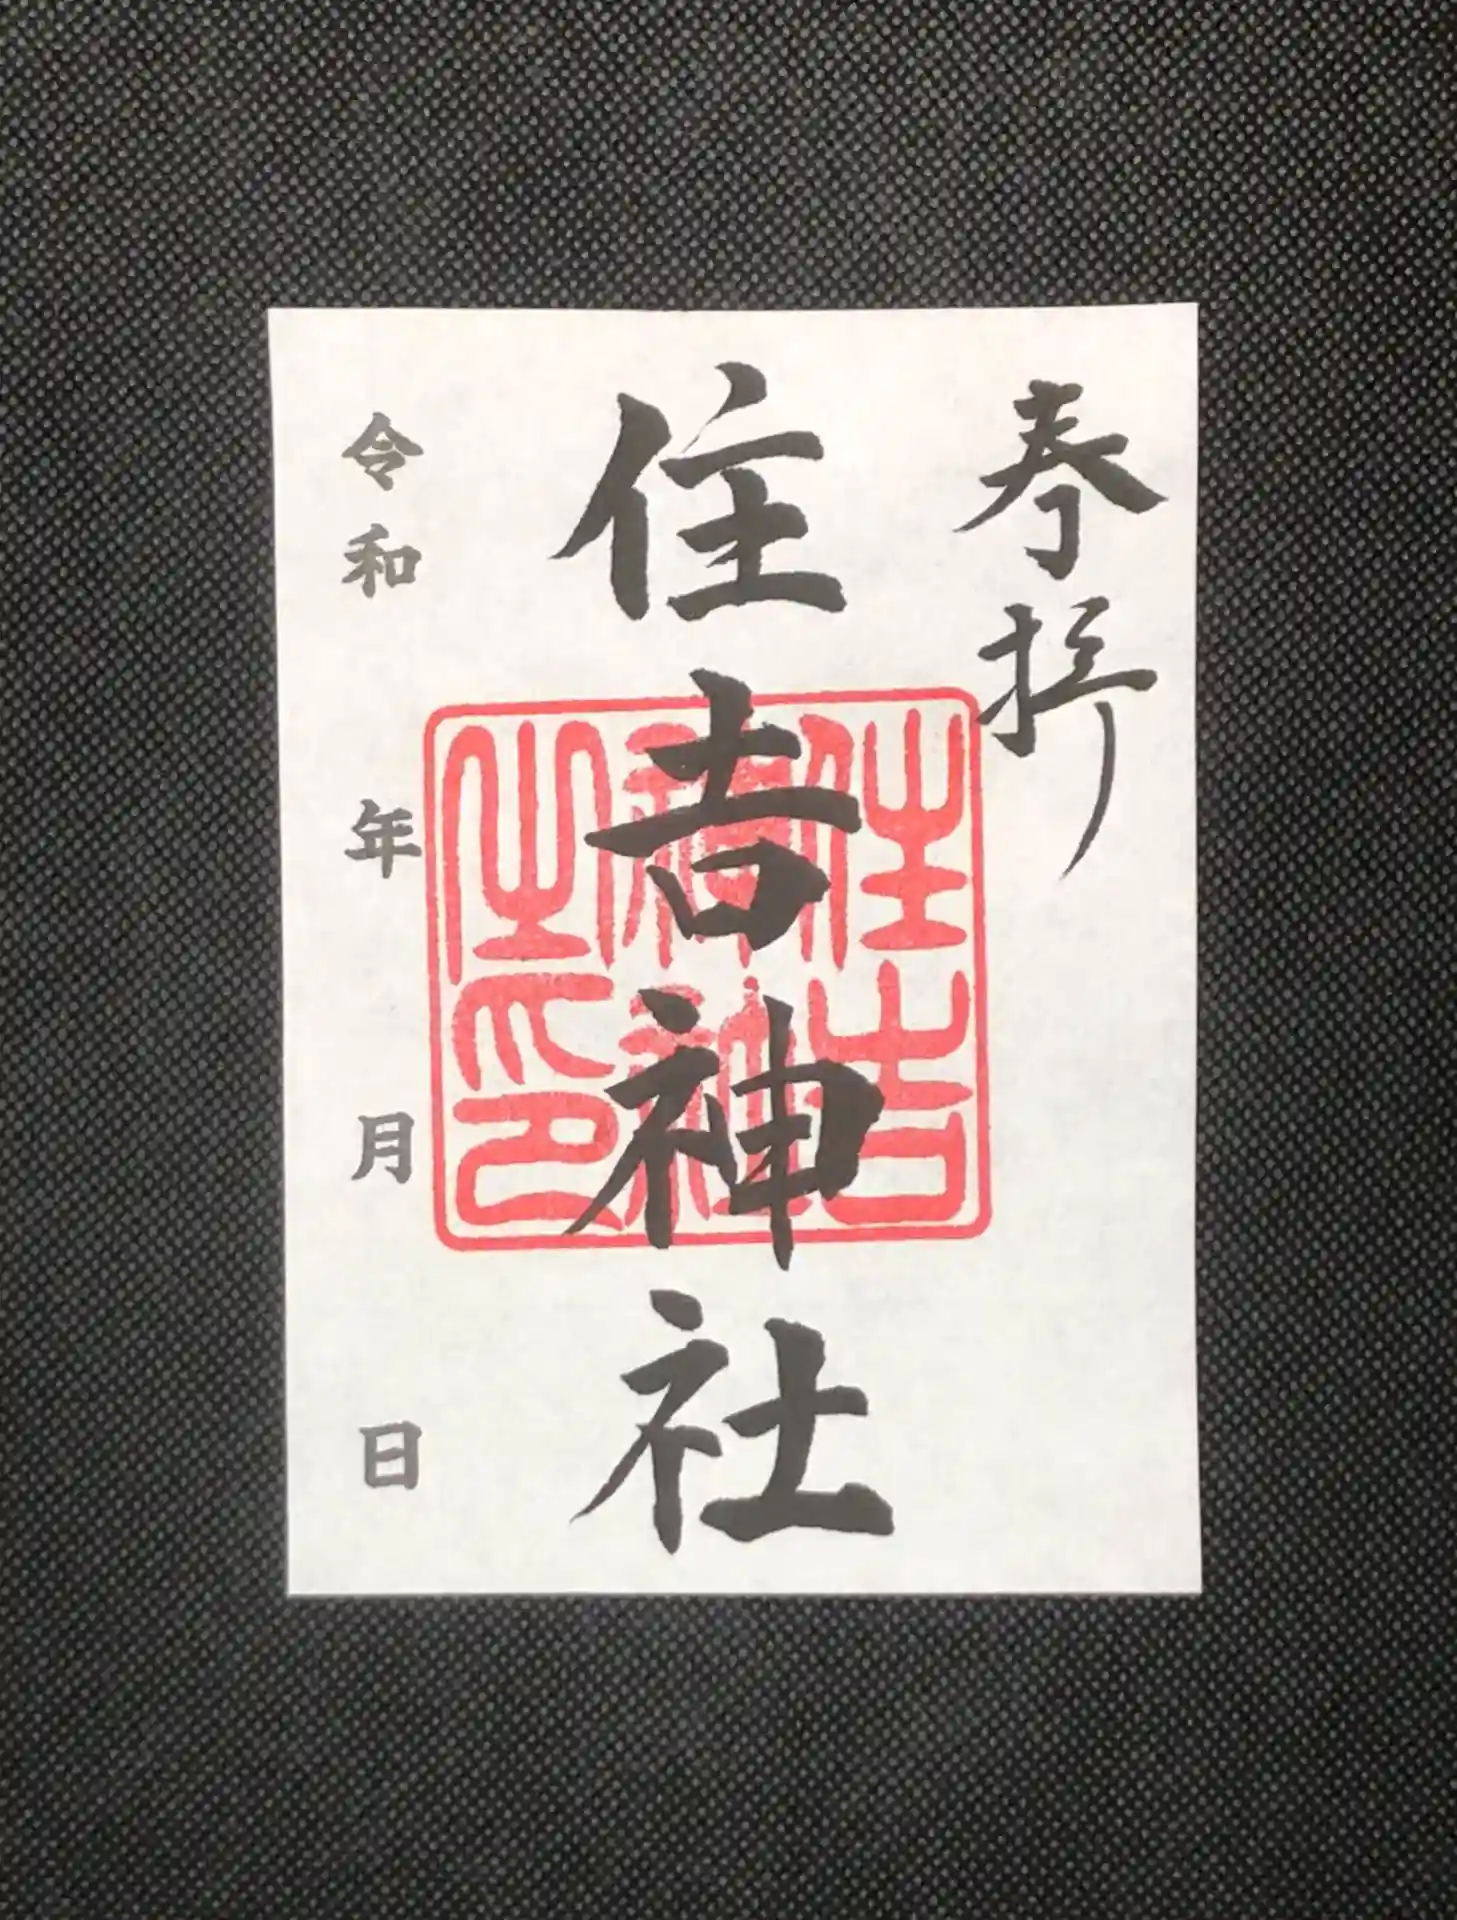 奉拝
住吉神社
住吉
神社
之印
令和 年 月 日